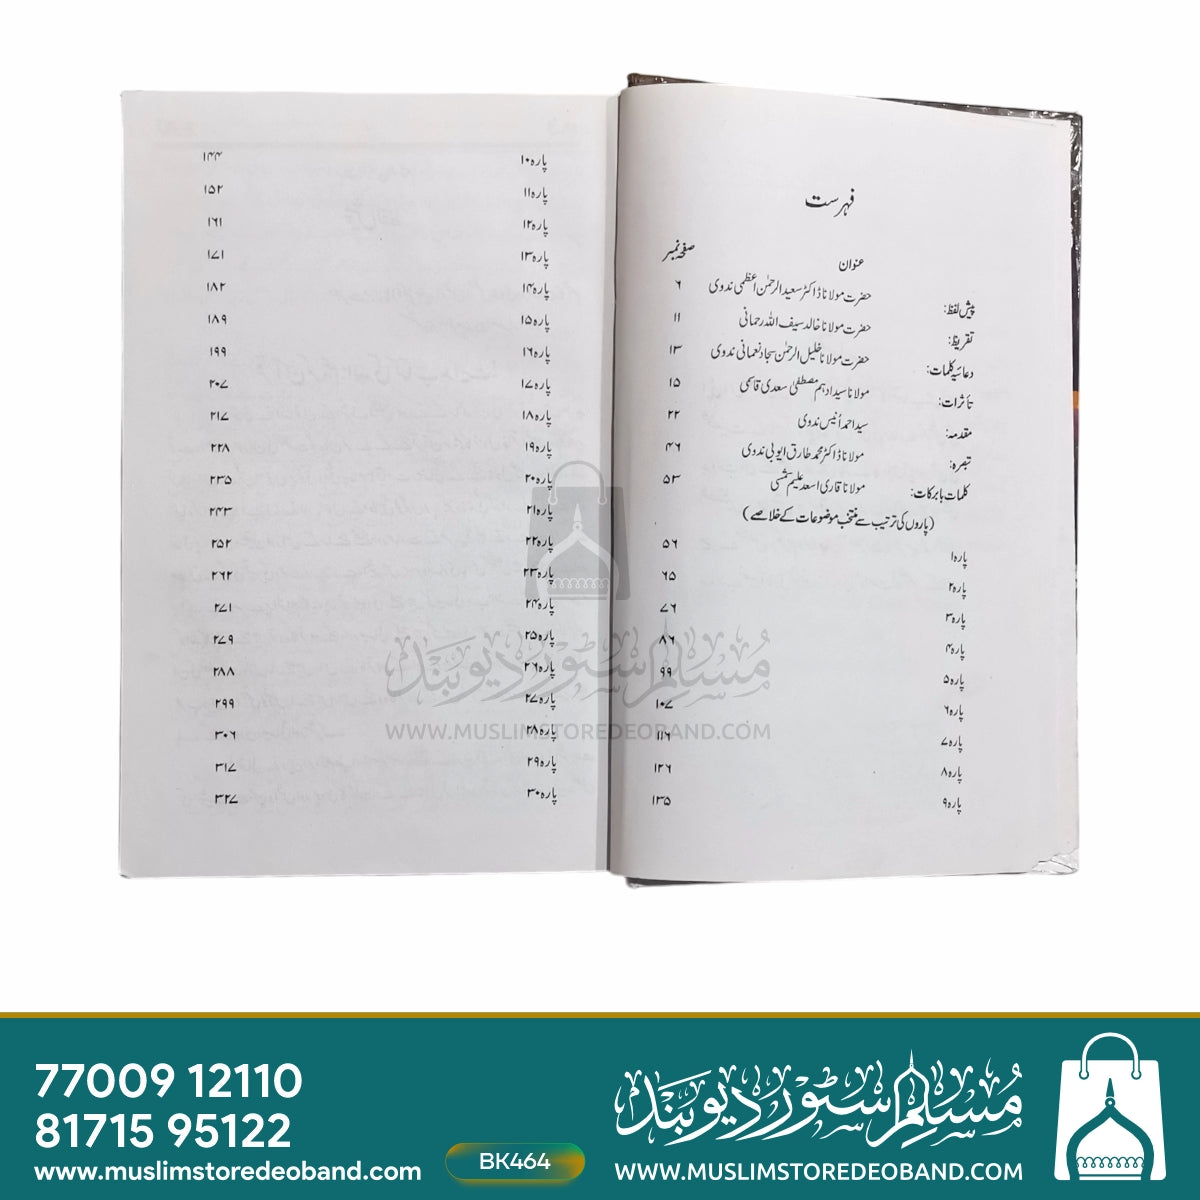 فہرست
عنوان صفحہ نمبر
پیش لفظ: حضرت مولانا ڈاکٹر سعید الرحمٰن اعظمی ندوی ۶
تقریظ: حضرت مولانا خالد سیف اللہ رحمانی ۱۱
دعائیہ کلمات: حضرت مولانا خلیل الرحمٰن سجاد نعمانی ندوی ۱۳
تأثرات: مولانا سید ادہم مصطفیٰ سعدی قاسمی ۱۵
مقدمہ: سید احمد اُنیس ندوی ۲۲
تبصرہ: مولانا ڈاکٹر محمد طارق ایوبی ندوی ۴۶
کلمات بابرکات: مولانا قاری اسعد علیم شمسی ۵۳
(پاروں کی ترتیب سے منتخب موضوعات کے خلاصے)
پارہ۱ ۵۶
پارہ۲ ۶۵
پارہ۳ ۷۶
پارہ۴ ۸۶
پارہ۵ ۹۹
پارہ۶ ۱۰۷
پارہ۷ ۱۱۶
پارہ۸ ۱۲۶
پارہ۹ ۱۳۵
پارہ۱۰ ۱۴۴
پارہ۱۱ ۱۵۲
پارہ۱۲ ۱۶۱
پارہ۱۳ ۱۷۱
پارہ۱۴ ۱۸۲
پارہ۱۵ ۱۸۹
پارہ۱۶ ۱۹۹
پارہ۱۷ ۲۰۷
پارہ۱۸ ۲۱۷
پارہ۱۹ ۲۲۸
پارہ۲۰ ۲۳۵
پارہ۲۱ ۲۴۳
پارہ۲۲ ۲۵۲
پارہ۲۳ ۲۶۲
پارہ۲۴ ۲۷۱
پارہ۲۵ ۲۷۹
پارہ۲۶ ۲۸۸
پارہ۲۷ ۲۹۹
پارہ۲۸ ۳۰۶
پارہ۲۹ ۳۱۷
پارہ۳۰ ۳۲۷
مسلم سٹور دیوبند
WWW.MUSLIMSTOREDEOBAND.COM
77009 12110
81715 95122
www.muslimstoredeoband.com
BK464
مسلم سٹور دیوبند
WWW.MUSLIMSTOREDEOBAND.COM